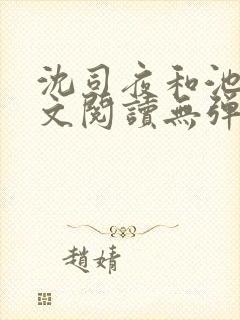 沈司夜和池
文閱讀無彈
趙婧